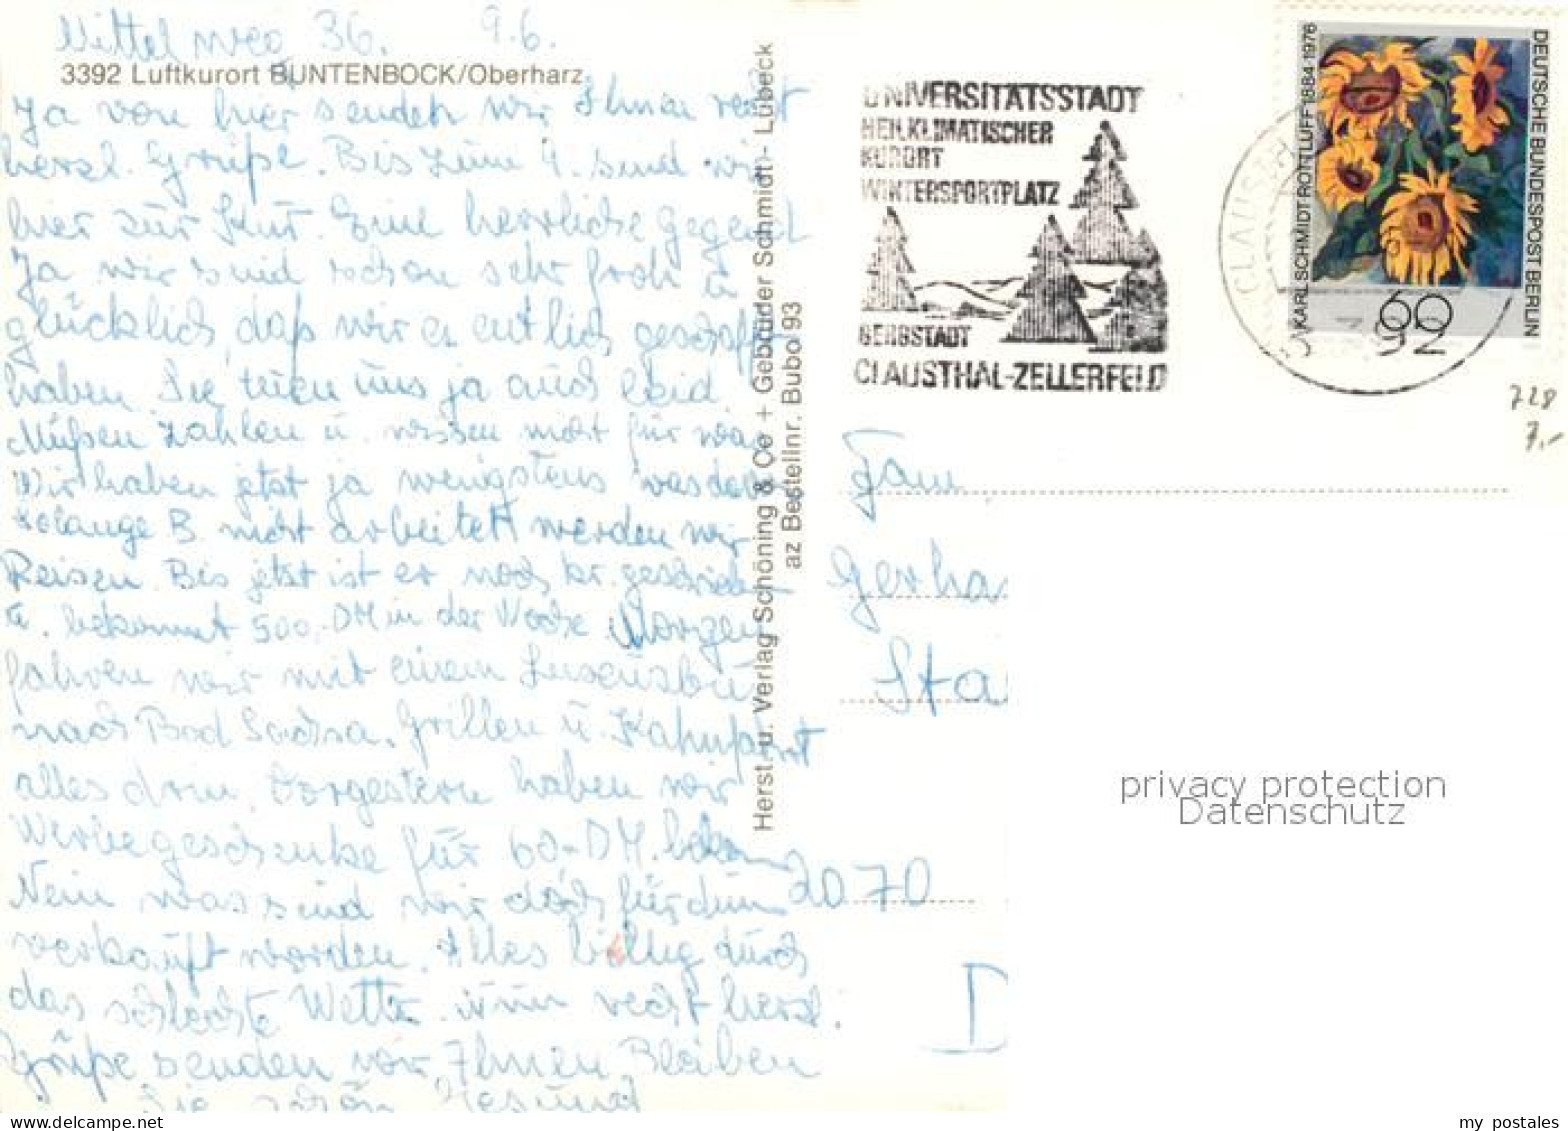 Mittelweg 36. 9.6.
3392 Luftkurort BUNTENBOCK/Oberharz
Ja von hier senden wir Ihnen recht
herzl. Grüße. Bis zum 9. sind wir
hier zur Kur. Eine herrliche Gegend
Ja wir sind schon sehr froh u
glücklich, daß wir es entlich geschafft
haben Sie tuen uns ja auch leid
Müßen zahlen u. wissen nicht für was
Wir haben jetzt ja wenigstens was davon
solange B. nicht arbeitet werden wir
Reisen. Bis jetzt ist er noch kr. geschrieben
u. bekommt 500,- DM in der Woche. Morgen
fahren wir mit einem Luxusbus
nach Bad Sachsa. Grillen u. Kahnfahrt
alles drin. Vorgestern haben wir
Werbegeschenke für 60,- DM.
Nein was sind wir doch für dumm
verkauft worden. Alles billig durch
das schlechte Wetter. nun recht herzl.
Grüße senden wir Ihnen Bleiben
Sie schön Gesund
Herst. u. Verlag Schöning & Co + Gebrüder Schmidt - Lübeck
az Bestellnr. Bubo 93
UNIVERSITÄTSSTADT
HEILKLIMATISCHER
KURORT
WINTERSPORTPLATZ
BERGSTADT
CLAUSTHAL-ZELLERFELD
CLAUSTHAL
KARL SCHMIDT-ROTTLUFF 1884-1976
DEUTSCHE BUNDESPOST BERLIN
60
92
728
7,-
Fam
Gerha
Sta
2070
D
privacy protection
Datenschutz
www.ansichtskarten-center.de
my postales